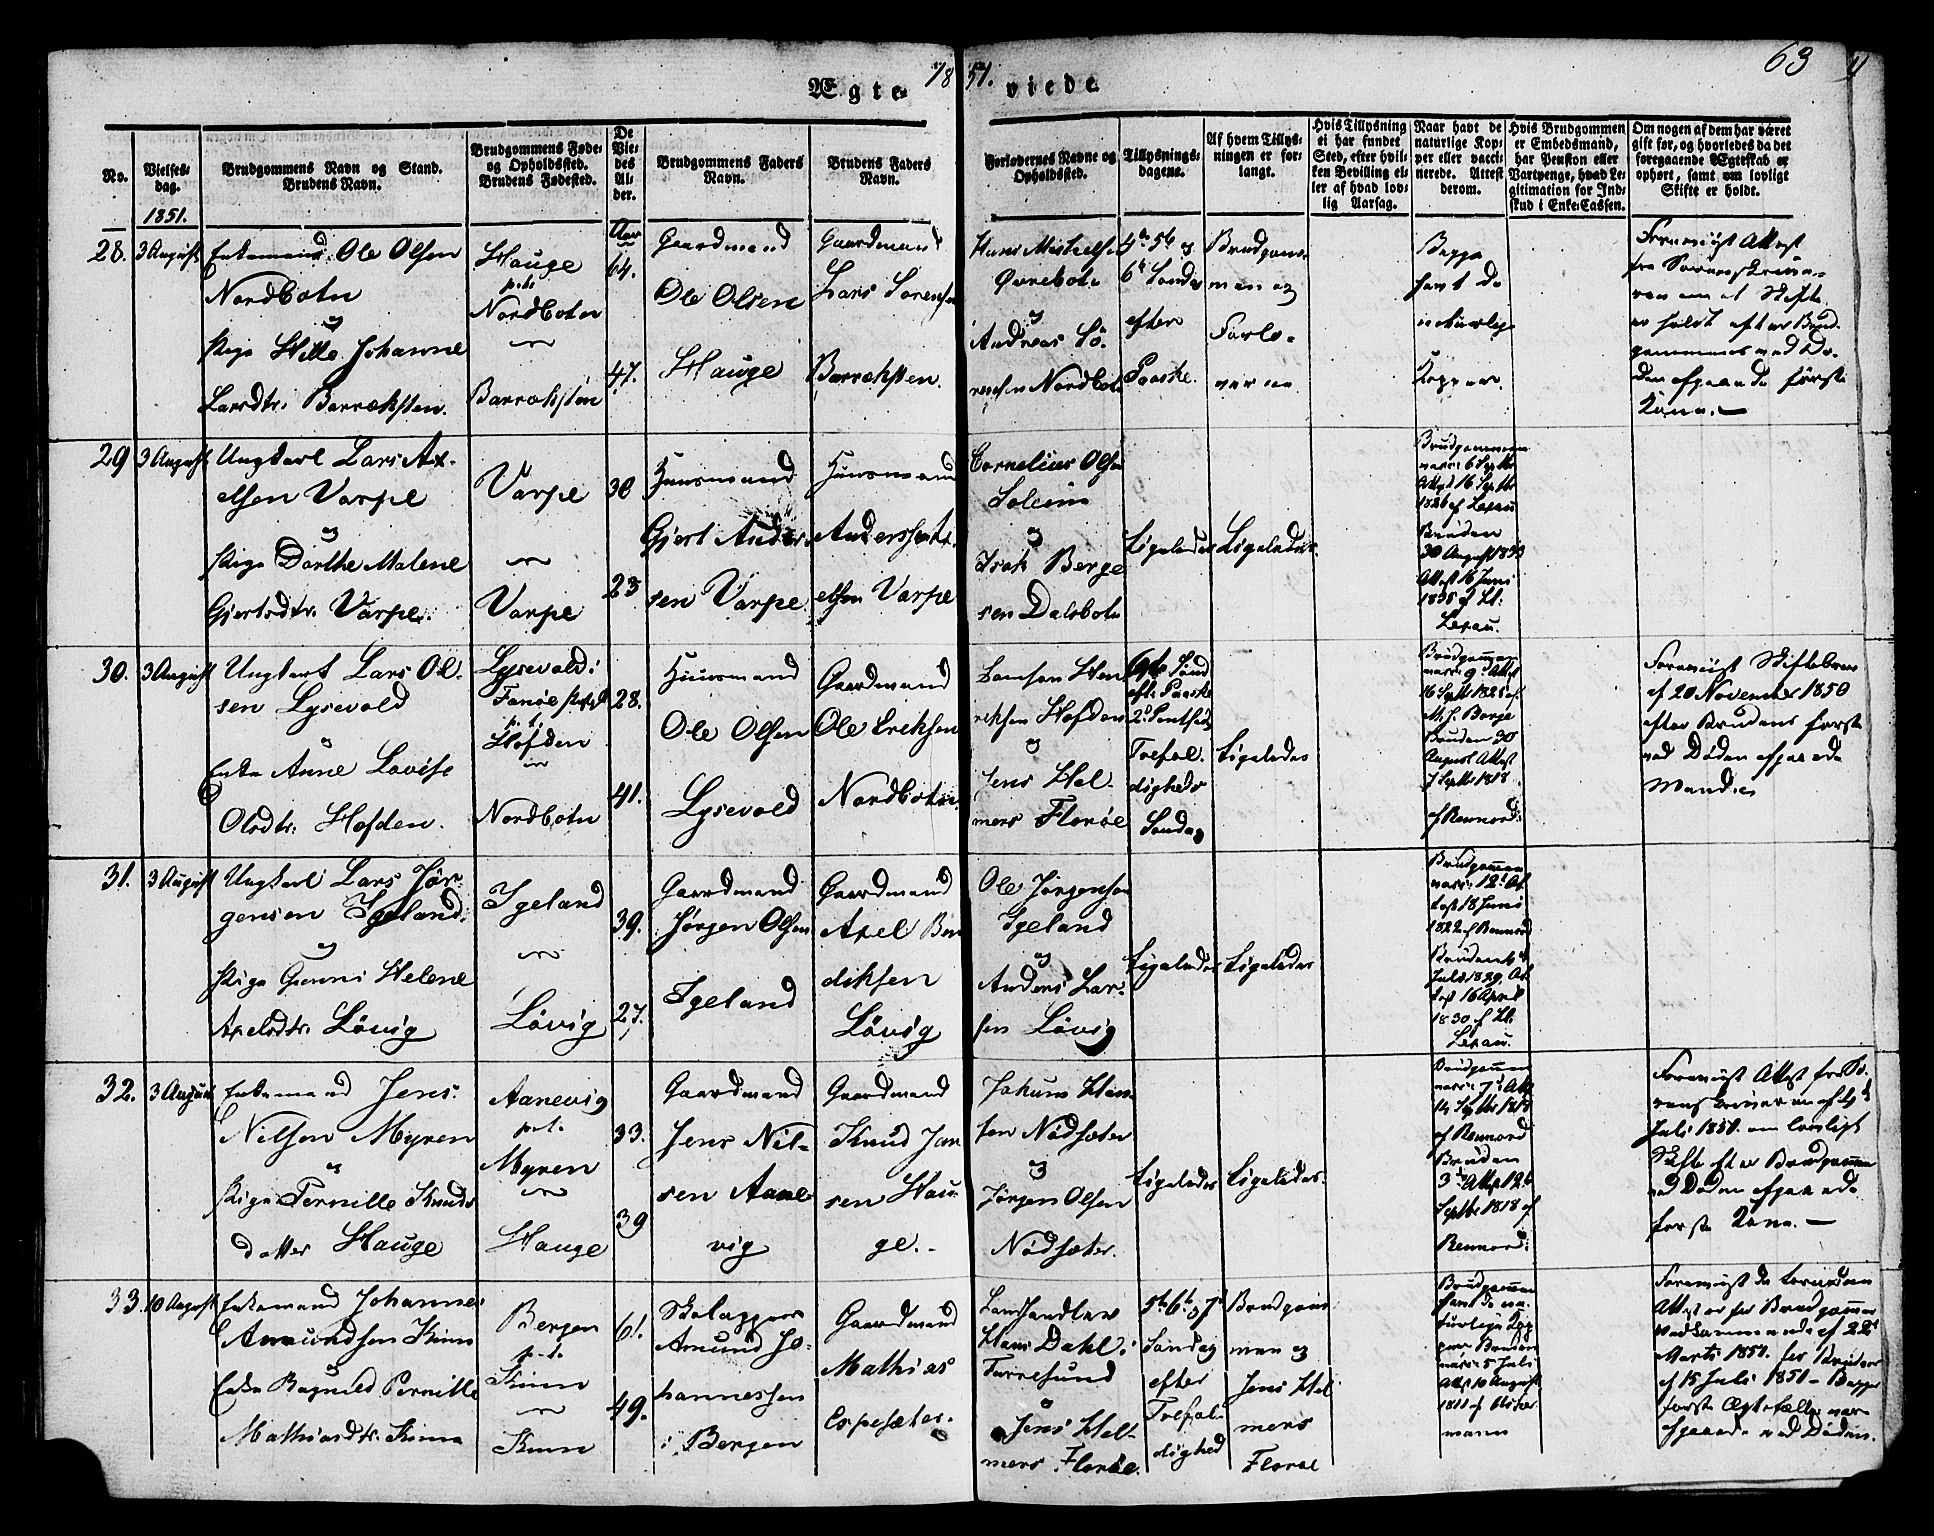 1851.
63
Ægteviede
No.
Vielses-
dag.
1851.
Brudgommens Navn og Stand.
Brudens Navn.
Brudgommens Føde-
og Opholdssted.
Brudens Fødested.
De
Vie-
des
Al-
der.
Aar
Brudgommens Faders
Navn.
Brudens Faders
Navn.
Forlovernes Navne og
Opholdssted.
Tillysnings-
dagene.
Af hvem Tillys-
ningen er for-
langt.
Hvis Tillysning
ei har fundet
Sted, efter hvil-
ken Bevilling el-
ler af hvad lov-
lig Aarsag.
Naar havt de
naturlige Kop-
per eller vacci-
nerede. Attest
derom.
Hvis Brudgommen
er Embedsmand,
har Pension eller
Vartpenge, hvad Le-
gitimation for Ind-
skud i Enke-Cassen.
Om nogen af dem har været
gift før, og hvorledes da det
foregaaende Ægteskab er
ophørt, samt om lovligt
Skifte er holdt.
28.
3 August
Enkemand Ole Olsen
Nordbotn
og
Pige Hille Johanne
Larsdtr. Barreksten.
Hauge
p. t.
Nordbotn
Barreksten
64.
47.
Gaardmand
Ole Olsen
Hauge
Gaardmand
Lars Sørensen
Barreksten.
Hans Mikkelsen
Øvrebotn
og
Andreas Sø-
rensen Nordbotn
4de 5te og
6te Søndag
efter
Paaske.
Brudgom-
men og
Forlo-
verne
Begge
havt de
naturlige
Kopper.
Foreviist Attest
fra Sorenskrive-
ren om at Skifte
er holdt efter Brud-
gommens ved Dø-
den afgaaede første
Kone.
29
3 August
Ungkarl Lars Ax-
elsen Varpe
og
Pige Dorthe Malene
Gjertsdtr. Varpe.
Varpe
Varpe
30
23
Huusmand
Gjert Anders-
sen Varpe
Huusmand
Anderssen Ax-
elsen Varpe
Cornelius Olsen
Solheim
og
Isak Berge
sen Dalsbotn
Ligeledes
Ligeledes.
Brudgommen
vacc. 6 Septbr
Attest 16 Septbr
1826 af Lexau
Bruden
30 August 1833
Attest 16 Juni
1835 af Kl:
Lexau.
30.
3 August
Ungkarl Lars Ol-
sen Lysevold
og
Enke Anne Lovise
Olsdtr. Hofden.
Lysevold i
Fanøe Præstgd
p. t.
Hofden
Nordbotn
28.
41.
Huusmand
Ole Olsen
Lysevold
Gaardmand
Ole Eriksen
Nordbotn.
Hen
riksen Hofden
og
Jens Hel-
mers Florøe
6te Sønd
eft. Paaske
2d Pentsedag
Trefol.
digheds
Søndag
Ligeledes
Brudgommen
vacc. 9d Attest
16 Septbr 1828 af
M. S. Borge
Bruden 30
August Attest
7 Septbr 1818
af Rennord:
Foreviist Skiftebrev
af 20 November 1850
efter Brudens første
ved Døden afgaaede
Mand.
31.
3 August
Ungkarl Lars Jør-
gensen Igeland.
og
Pige Gunni Helene
Axelsdtr. Løvig
Igeland
Løvig
39.
27.
Gaardmand
Jørgen Olsen
Igeland
Gaardmand
Axel Ben
diksen
Løvig
Ole Jørgensen
Igeland
og
Anders Lar-
sen Løvig
Ligeledes
Ligeledes
Brudgommen
vacc. 12d At-
test 18 Juni
1822 af Rennord
Bruden
Juli 1829, At-
test 16 April
1830 af Kl.
Lexau.
32.
3 August
Enkemand Jens
Nilsen Myren
og
Pige Pernille Knuds
datter Hauge
Aanevig
p. t.
Myren
Hauge
33.
39
Gaardmand
Jens Nil-
sen Aane
vig
Gaardmand
Knud Jan
sen Hau-
ge.
Jakum Han
sen Nødsæter
og
Jørgen Olsen
Nødsæter.
Ligeledes
Ligeledes.
Brudgommen
vacc. 7d Attest
14 Septbr 1818
af Rennord
Bruden
3d Attest 12te
Septbr 1818 af
Rennord:
Foreviist Attest fra So-
renskriveren af 4d
Juli 1851. om lovligt
Skifte efter Brudgommens
ved Døden afgaaede
første Kone.
33.
10 August
Enkemand Johannes
Amundsen Kinn
Enke Ragnild Pernille
Mathiasdtr. Kinn
Bergen
p. t.
Kinn
Kinn
61.
49.
Skolapper
Amund Jo-
hannessen
i Bergen
Gaardmand
Mathias
Espesæter.
Landhandler
Hans Dahl i
Furresund
og
Jens Hel-
mers Florøe.
5te 6te og 7d
Søndag
efter
Trefol-
dighed
Brudgom
men og
Jens Hel
mers
Florøe
Brudgommen
havt de na-
turlige Kop-
per Bruden
vacc. 5 Juli
Attest 10 August
1811 af Asker
mann
Foreviist de fornødne
Attester for Brudgommens
Vedkommende af 22d
Marts 1851. for Brudens
af 15 Juli 1851 - Begges
første Ægtefæller var
afgaaede ved Døden.